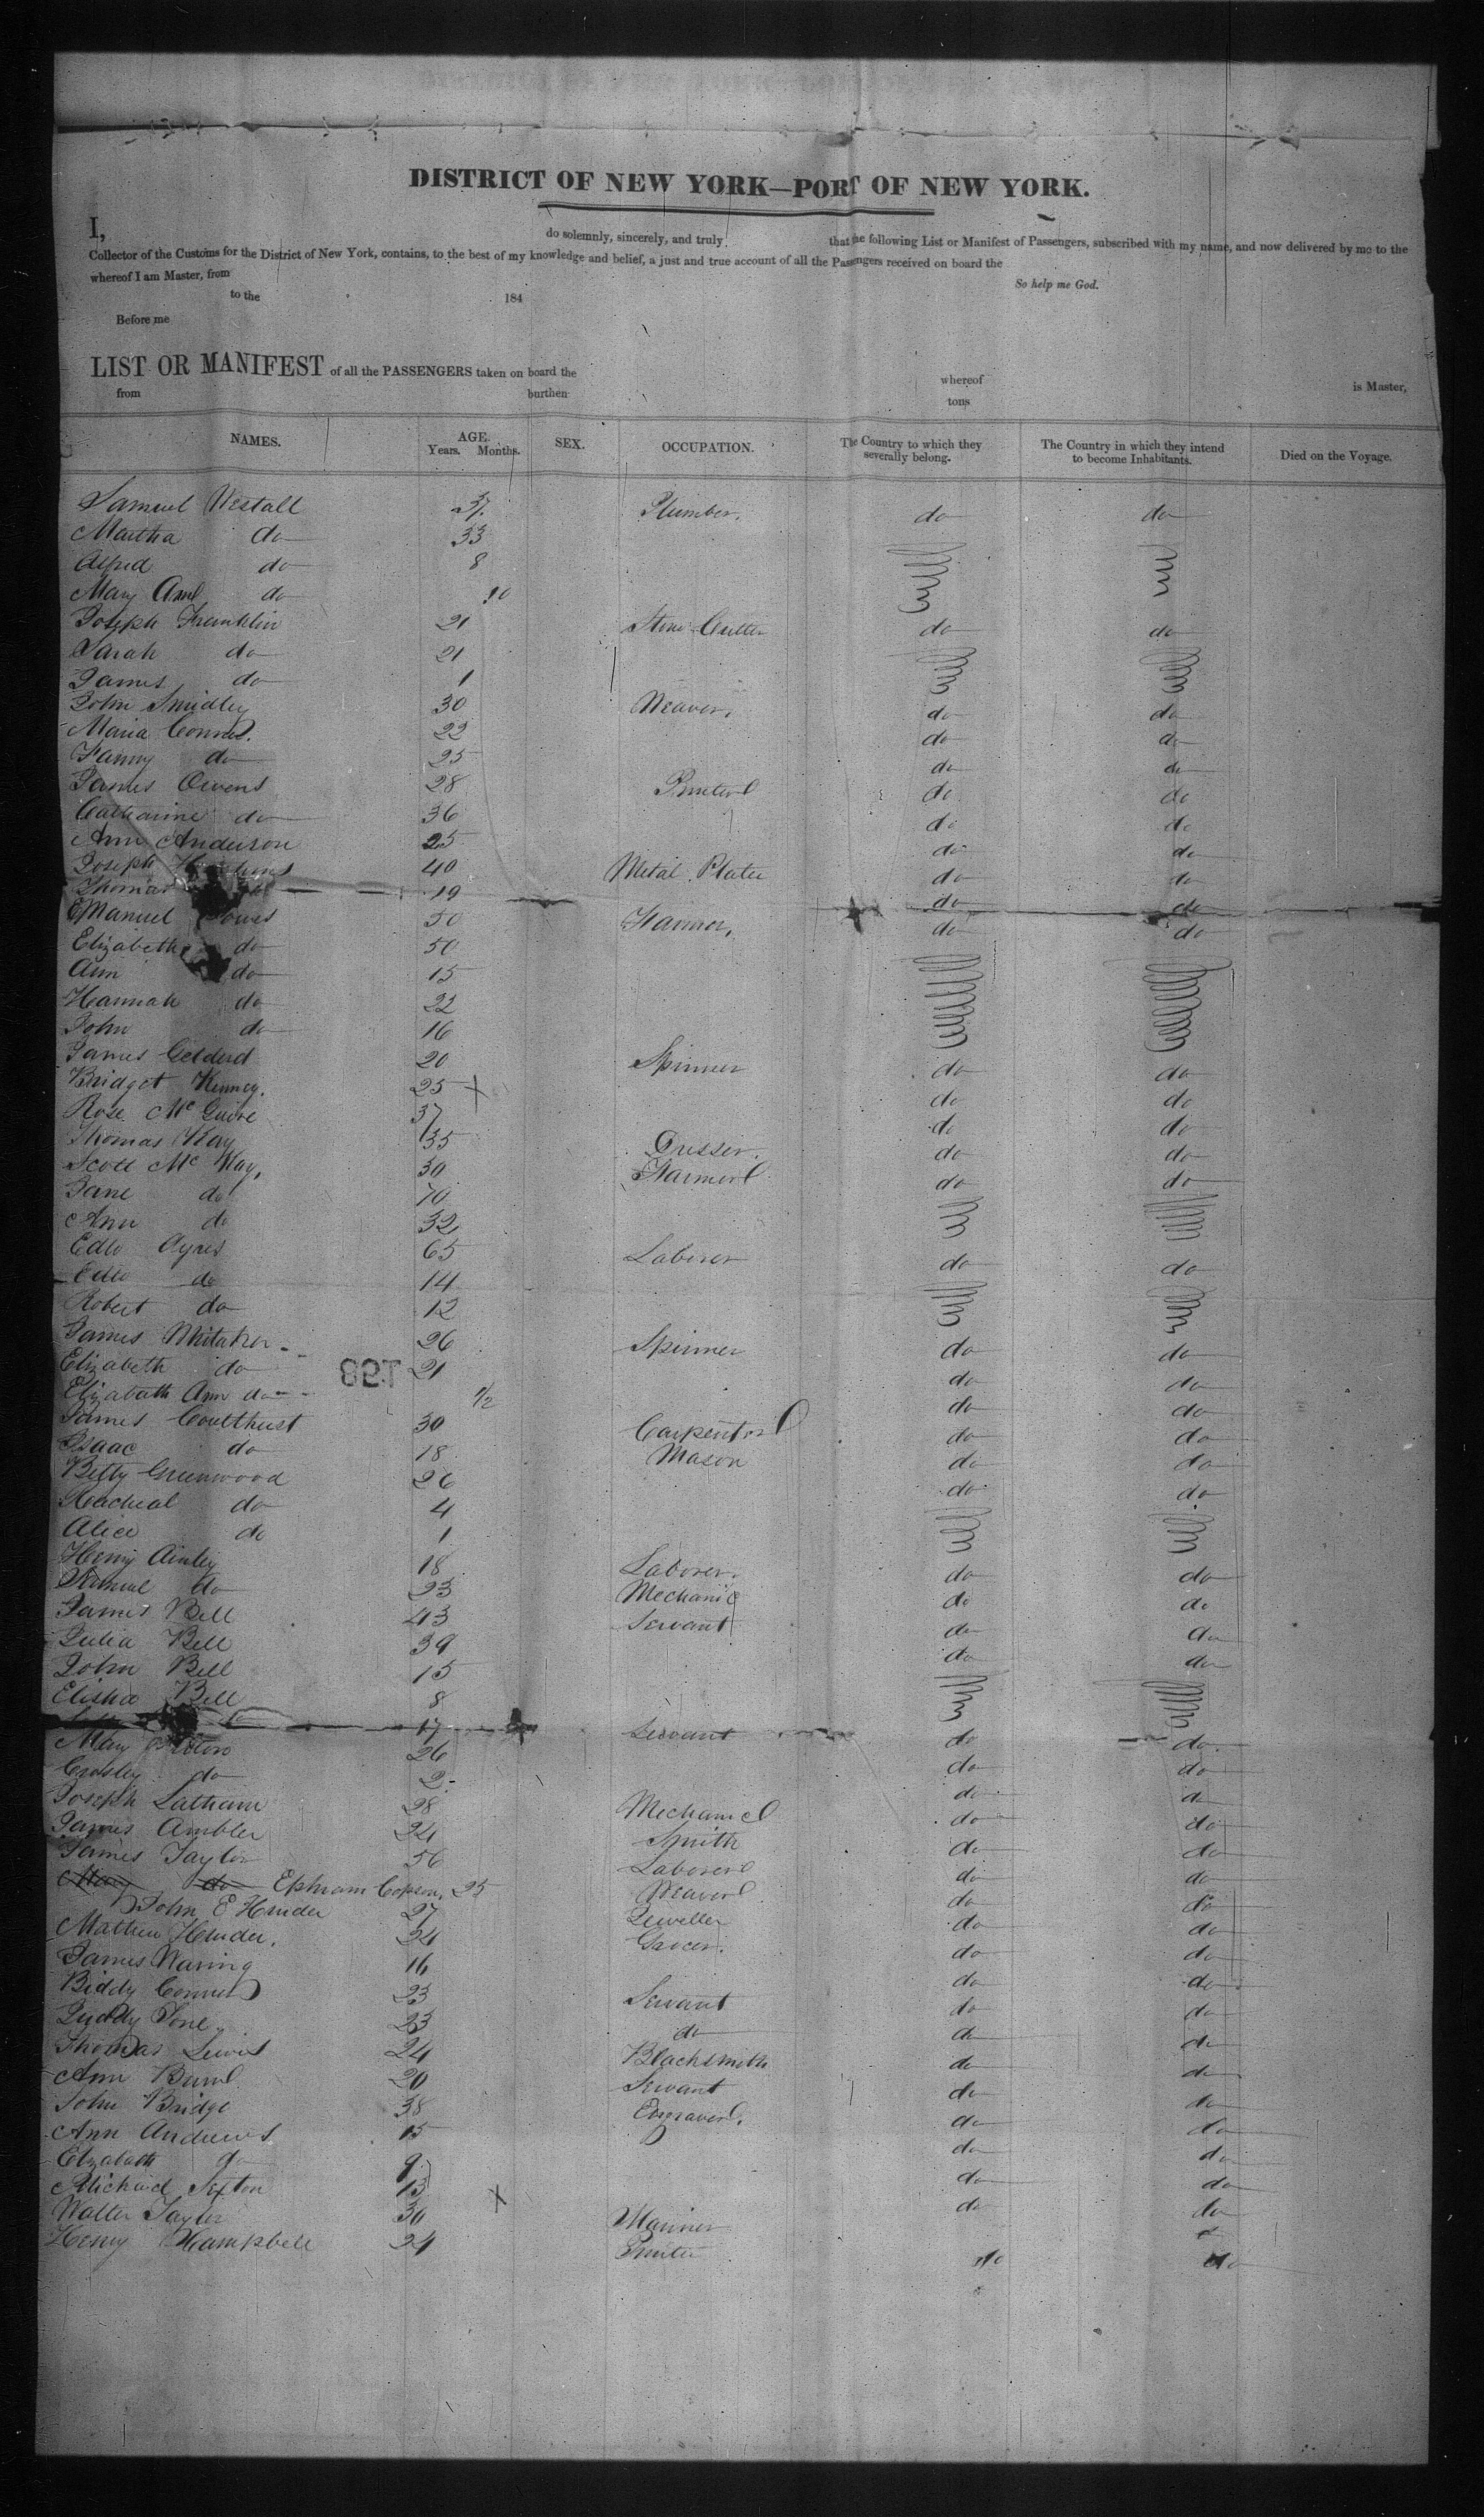 DISTRICT OF NEW YORK—PORT OF NEW YORK.
I, do solemnly, sincerely, and truly that the following List or Manifest of Passengers, subscribed with my name, and now delivered by me to the
Collector of the Customs for the District of New York, contains, to the best of my knowledge and belief, a just and true account of all the Passengers received on board the
whereof I am Master, from So help me God.
to the 184
Before me
LIST OR MANIFEST of all the PASSENGERS taken on board the whereof is Master,
from burthen tons
NAMES. AGE. Years. Months. SEX. OCCUPATION. The Country to which they severally belong. The Country in which they intend to become Inhabitants. Died on the Voyage.
Samuel Westall 37 Plumber. do do
Martha do 33
Alfred do 8
Mary Ann do 10
Joseph Franklin 21 Stone Cutter do do
Sarah do 21
James do 1
John Smidley 30 Weaver. do do
Maria 22 do do
Fanny do 25 do do
James Owens 28 do do
Catharine do 36 do do
Ann Anderson 25 do do
Joseph 40 Metal Plater do do
Thomas 19 do do
Emanuel 50 Farmer. do do
Elizabeth do 50
Ann do 15
Hannah do 22
John do 16
James 20 Spinner do do
Bridget Kenney. 25 do do
Rose McGuire 37 do do
Thomas Kay 35 Dresser. do do
Scott McKay, 30 Farmer do do
Jane do 70
Ann do 32
Edw Ayres 65 Laborer do do
Edw do 14
Robert do 12
James Whitaker 26 Spinner do do
Elizabeth do 21 do do
Elizabeth Ann do 1/2 do do
James Coulthurst 30 Carpenter do do
Isaac do 18 Mason do do
Betty Greenwood 26 do do
Racheal do 4
Alice do 1
Henry Ainley 18 Laborer. do do
Samuel do 23 Mechanic do do
James Bell 43 Servant do do
Julia Bell 39 do do
John Bell 15
Elisha Bell 8
17 Servant do do
Mary 26 do do
Crosley do 2 do do
Joseph Latham 28 Mechanic do do
James Ambler 24 Smith do do
James Taylor 56 Laborer do do
Mary do Ephraim Copson, 25 Weaver do do
John E Hender 27 Jeweller do do
Mathew Hender. 24 Grocer. do do
James Waring 16 do do
Biddy 23 Servant do do
23 do do do
Thomas Lewis 24 Blacksmith do do
Ann 20 Servant do do
John Bridge 38 Engraver. do do
Ann Andrews 15 do do
Elizabeth do 9 do do
Michael Sexton 13 do do
Walter Taylor 30 Mariner
Henry Hampbell 24 do do